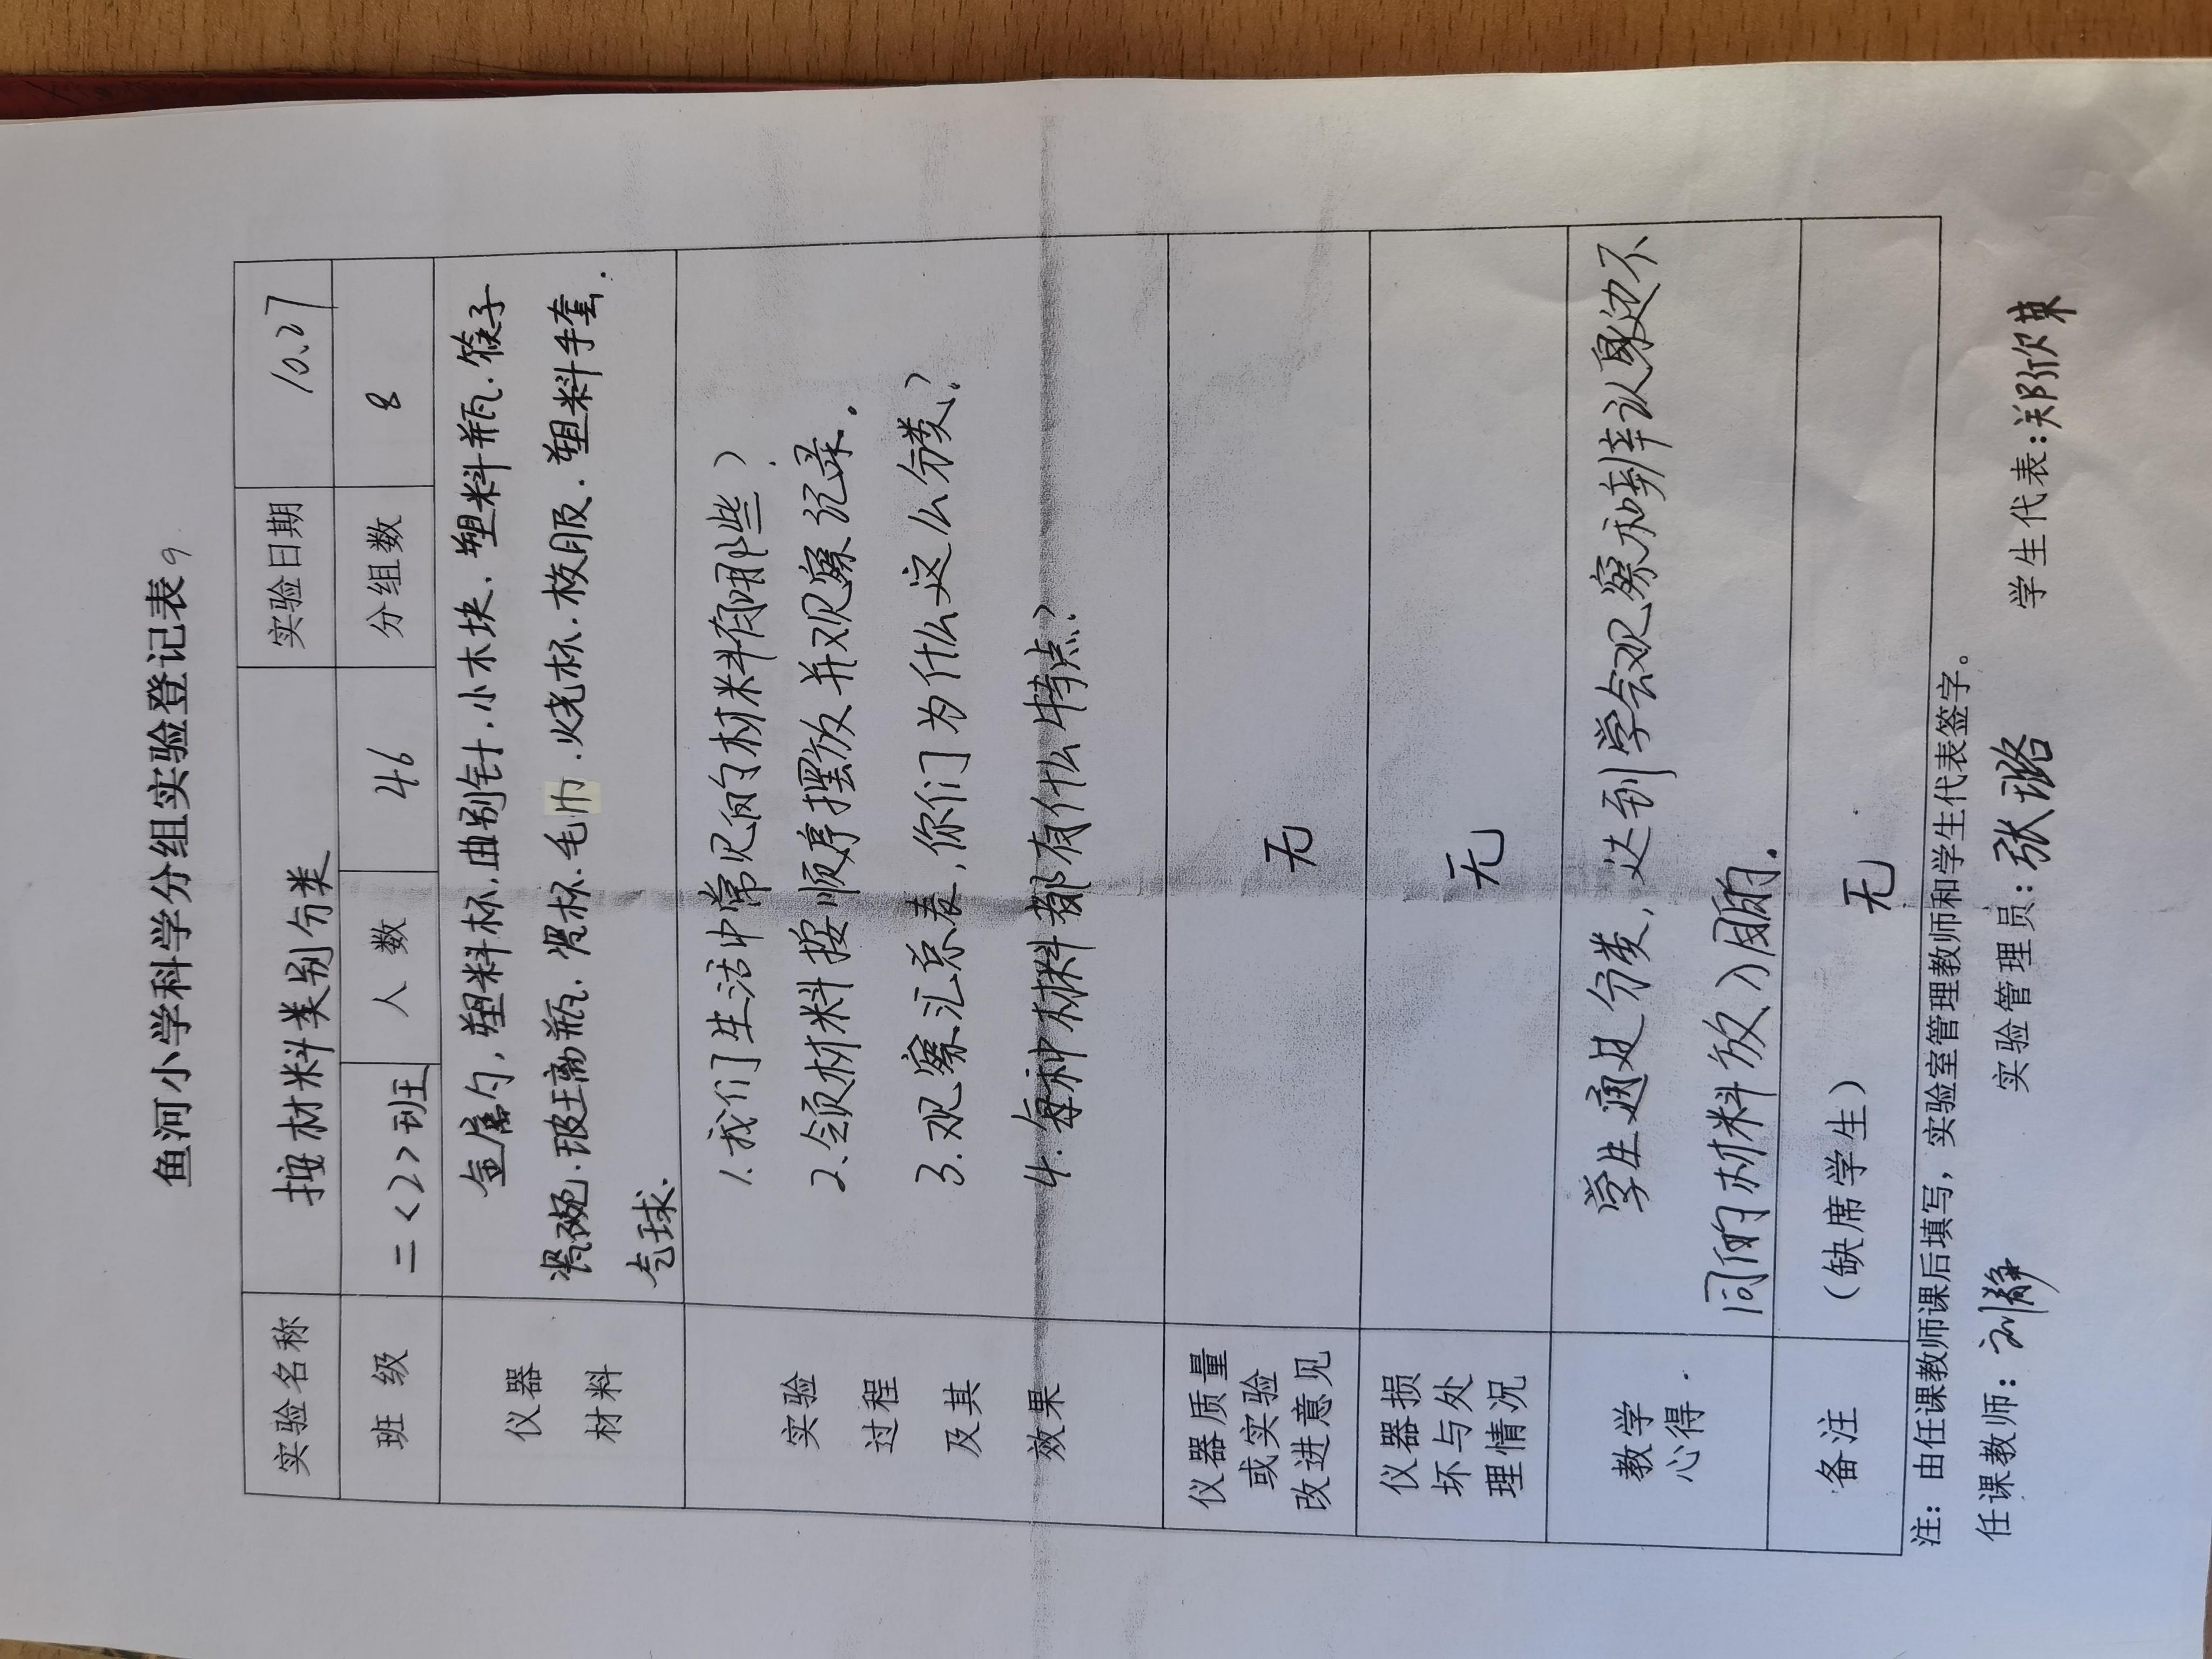 鱼河小学科学分组实验登记表 9
实验名称 按材料类别分类 实验日期 10.27
班 级 二<2>班 人 数 46 分组数 8
仪器
材料
金属勺,塑料杯,曲别针.小木块.塑料瓶.筷子
瓷碗.玻璃瓶.瓷杯.毛巾.烧杯.校服.塑料手套.
气球.
实验
过程
及其
效果
1.我们生活中常见的材料有哪些?
2.领材料按顺序摆放并观察记录.
3.观察汇总表,你们为什么这么分类?
4.每种材料都有什么特点?
仪器质量
或实验
改进意见
无
仪器损
坏与处
理情况
无
教学
心得
学生通过分类,达到学会观察和辨认身边不
同的材料
备注 (缺席学生) 无
注:由任课教师课后填写,实验室管理教师和学生代表签字。
任课教师:刘静 实验管理员:张璐 学生代表:郑欣